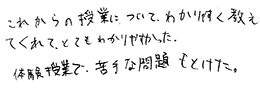 これからの授業について、わかりやすく教え
てくれて、とてもわかりやすかった。
体験授業で、苦手な問題もとけた。